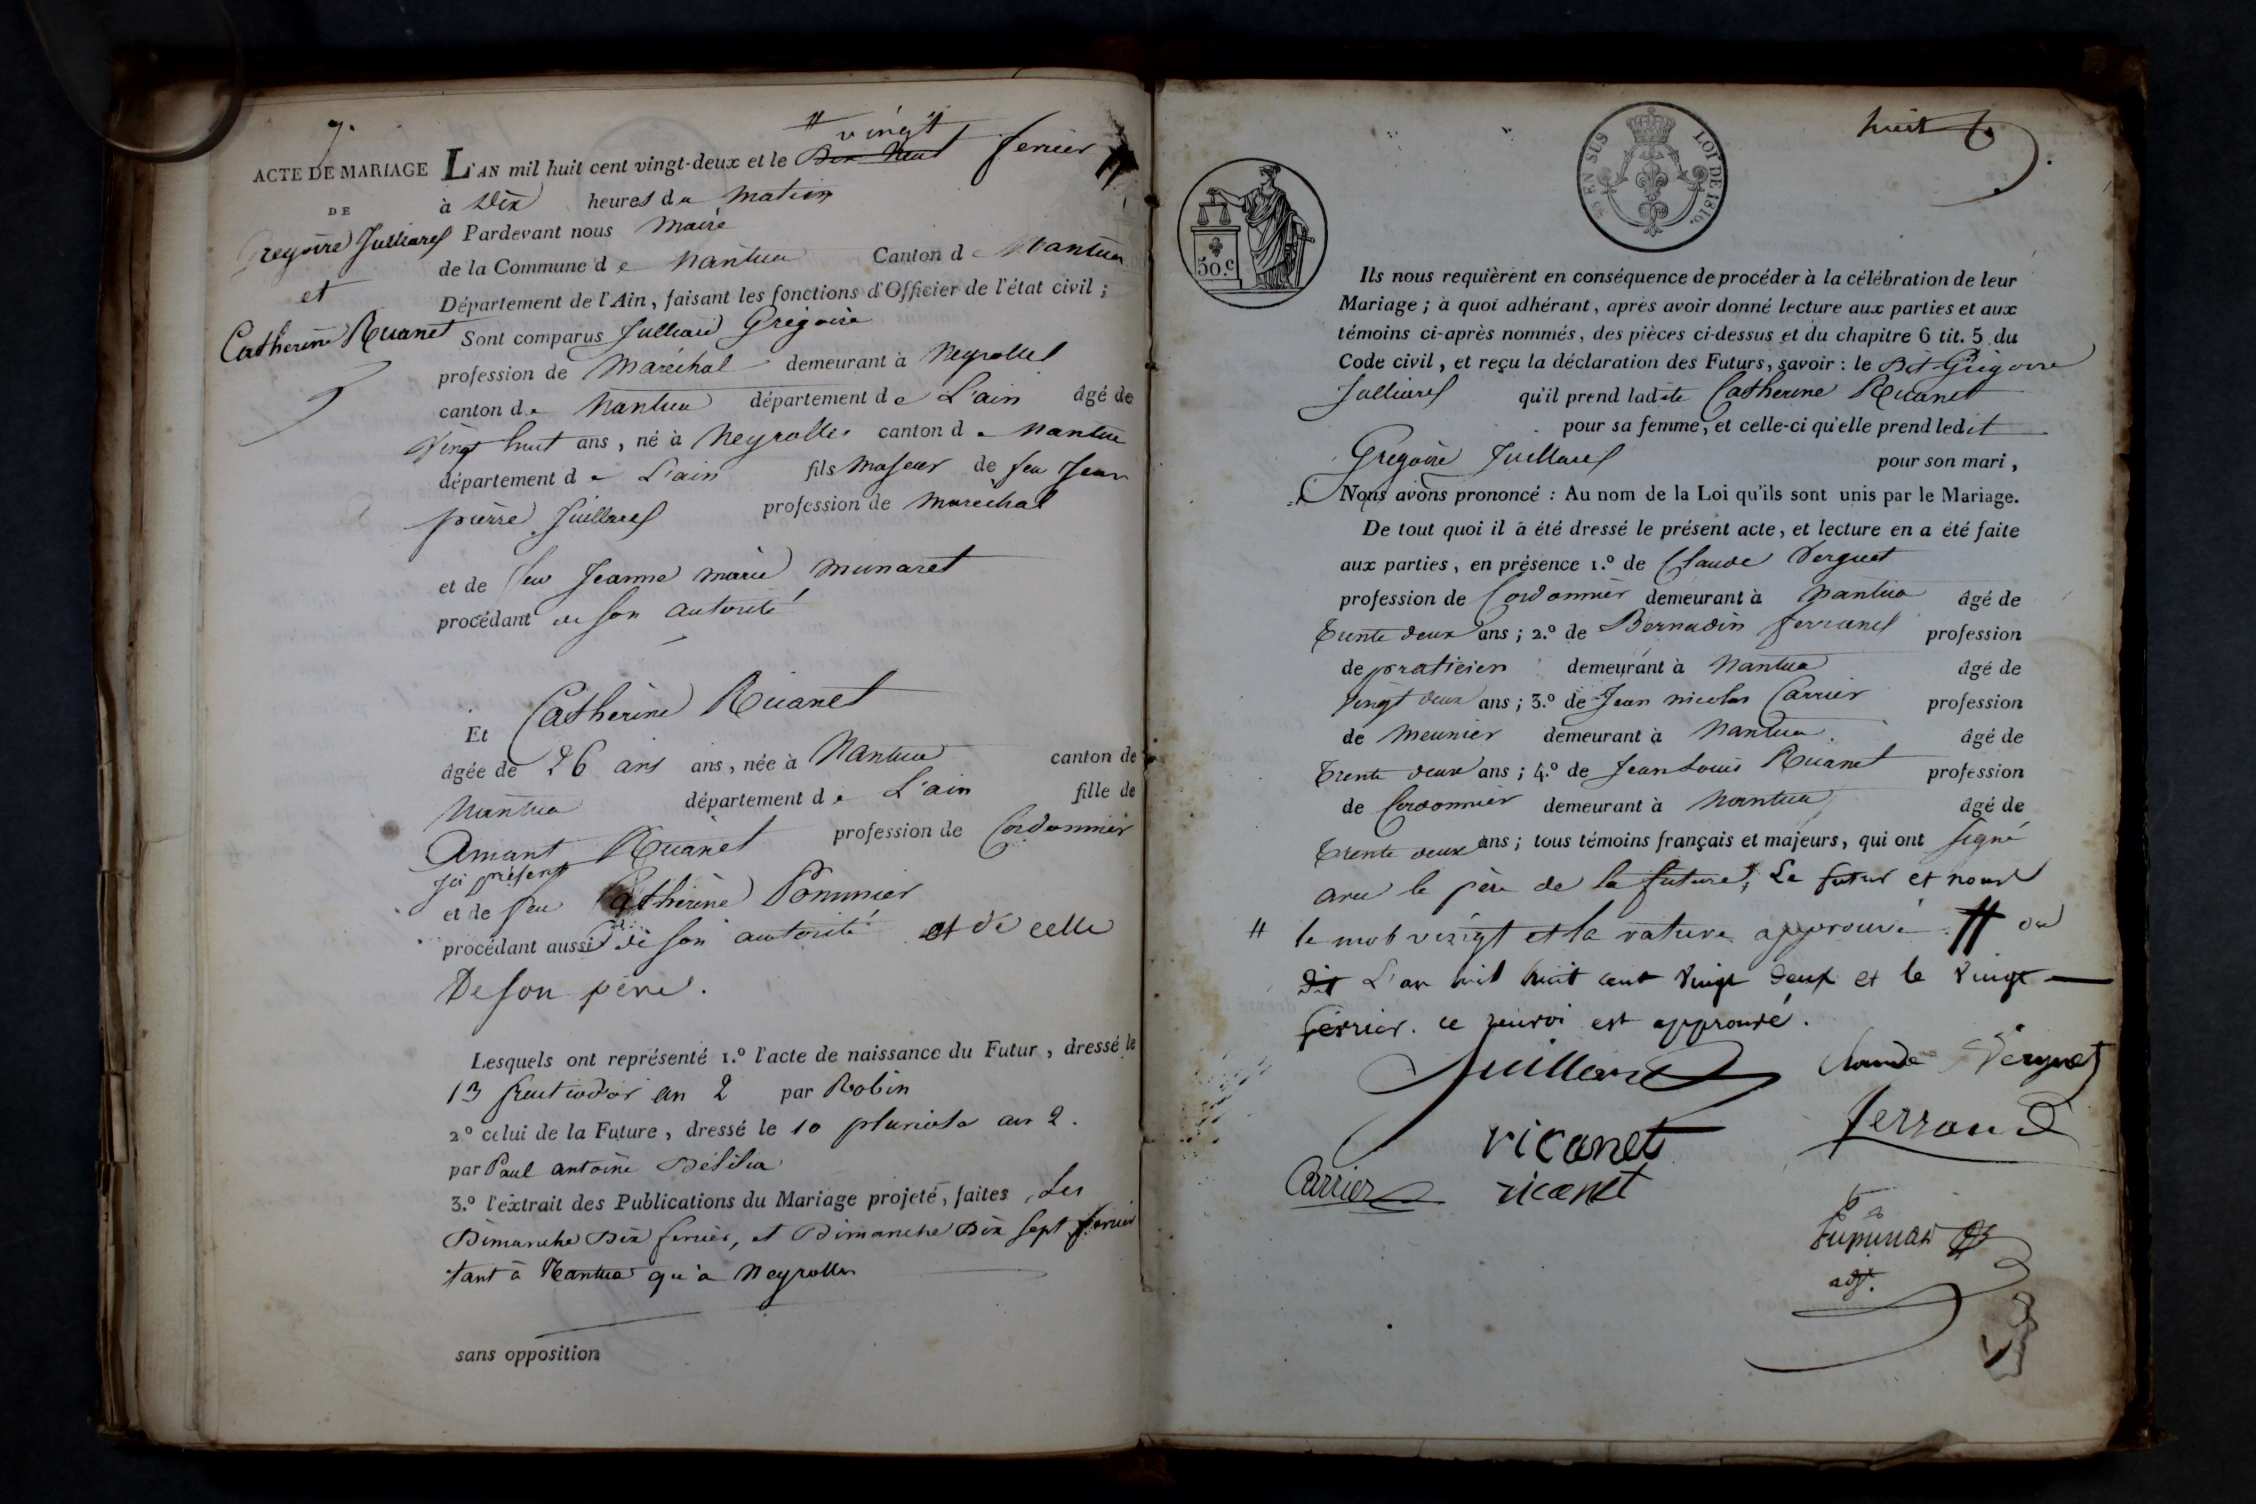 7.
ACTE DE MARIAGE
DE
Gregoire Juillard
et
Catherine Ricanet
L'AN mil huit cent vingt-deux et le Dix Neuf # vingt fevrier #
à Dix heures du Matin
Pardevant nous Maire
de la Commune de Nantua Canton de Nantua
Département de l'Ain, faisant les fonctions d'Officier de l'état civil ;
Sont comparus Julliard Grégoire
profession de Maréchal demeurant à Neyrolles
canton de Nantua département de L'ain âgé de
Vingt huit ans, né à Neyrolles canton de Nantua
département de L'ain fils Majeur de feu Jean
pierre Juillard profession de Maréchal
et de feu Jeanne marie Munaret
procédant de son autorité
Et Catherine Ricanet
âgée de 26 ans ans, née à Nantua canton de
Nantua département de L'ain fille de
Amant Ricanet profession de Cordonnier
ici présent
et de feu Catherine Pommier
procédant aussi de son autorité et de celle
De son père.
Lesquels ont représenté 1.º l'acte de naissance du Futur, dressé le
13 fructidor an 2 par Robin
2º celui de la Future, dressé le 10 pluviose an 2.
par Paul antoine Délilia
3.º l'extrait des Publications du Mariage projeté, faites Les
Dimanche Dix fevrier, et Dimanche Dix sept fevrier
tant à Nantua qu'a Neyrolles
sans opposition
huit
EN SUS LOI DE 1816.
50.c
Ils nous requièrent en conséquence de procéder à la célébration de leur
Mariage ; à quoi adhérant, après avoir donné lecture aux parties et aux
témoins ci-après nommés, des pièces ci-dessus et du chapitre 6 tit. 5 du
Code civil, et reçu la déclaration des Futurs, savoir : le Dit Grégoire
Julliard qu'il prend ladite Catherine Ricanet
pour sa femme, et celle-ci qu'elle prend ledit
Gregoire Juillard pour son mari,
Nous avons prononcé : Au nom de la Loi qu'ils sont unis par le Mariage.
De tout quoi il a été dressé le présent acte, et lecture en a été faite
aux parties, en présence 1.º de Claude Verguet
profession de Cordonnier demeurant à Nantua âgé de
Trente deux ans ; 2.º de Bernadin ferrand profession
de praticien demeurant à Nantua âgé de
Vingt deux ans ; 3.º de Jean nicolas Carrier profession
de Meunier demeurant à Nantua. âgé de
Trente deux ans ; 4.º de Jean Louis Ricanet profession
de Cordonnier demeurant à Nantua âgé de
Trente deux ans ; tous témoins français et majeurs, qui ont signé
avec le père de la future, Le futur et nous
# le mot vingt et la rature approuvé. # ou
dit L'an mil huit cent vingt deux et le vingt
fevrier. ce renvoi est approuvé.
Juillard Claude Verguet
ricanet ferrand
Carrier ricanet
adj.